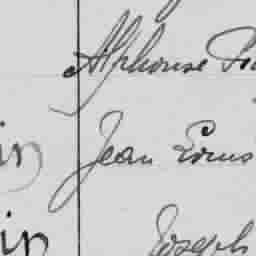 Alphonse
in Jean Louis
in Joseph